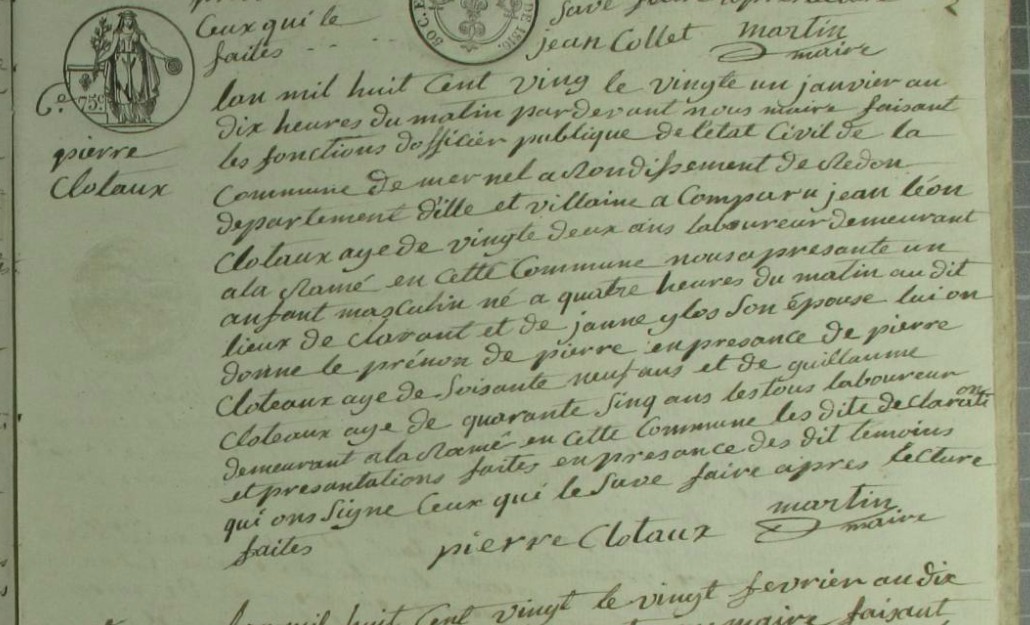 Ceux qui le save faire apres lecture
faites
jean Collet martin
maire
50 C. E
DE 1816.
75c
pierre
Clotaux
lan mil huit Cent ving le vingte un janvier au
dix heures du matin pardevant nous maire faisant
les fonctions dofficier publique de letat Civil de la
Commune de mernel arondissement de Redon
departement dille et villaine a Comparu jean léon
Clotaux aye de vingte deux ans laboureur demeurant
a la Ramé en Cette Commune nous a presante un
anfant masculin né a quatre heures du matin au dit
lieux de Clarant et de janne ylos Son épouse lui on
donne le prénon de pierre en presance de pierre
Cloteaux aye de Soisante neuf ans et de guillaume
Cloteaux aye de quarante Sinq ans les tous laboureur
demeurant a la Ramé en Cette Commune les dite declaration
et presantations faites en presance des dit temoins
qui ons Signe Ceux qui le Save faire apres lecture
faites pierre Clotaux martin
maire
lan mil huit Cent vingt le vingt fevrier au dix
maire faisant